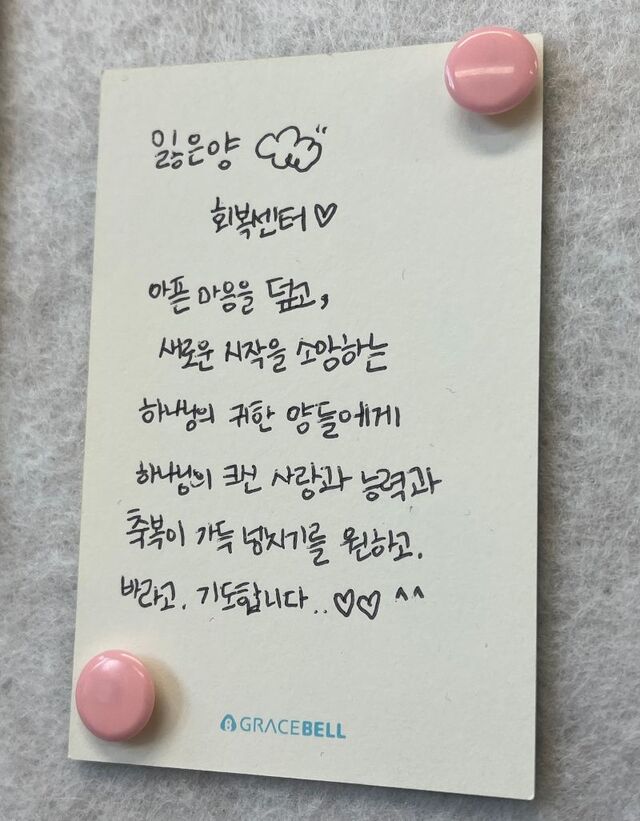 잃은양
회복센터♡
아픈 마음을 덮고,
새로운 시작을 소망하는
하나님의 귀한 양들에게
하나님의 크신 사랑과 능력과
축복이 가득 넘치기를 원하고.
바라고. 기도합니다..♡♡ ^^
GRACEBELL